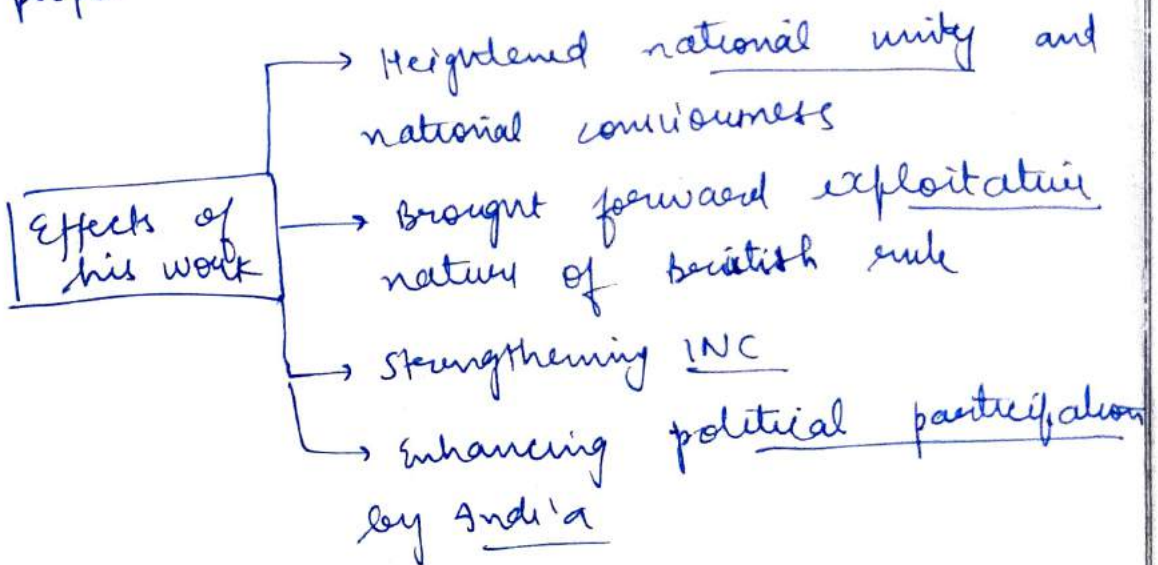 Heightened national unity and
national consciousness
Effects of
his work
Brought forward exploitative
nature of British rule
Strengthening INC
Enhancing political participation
by India